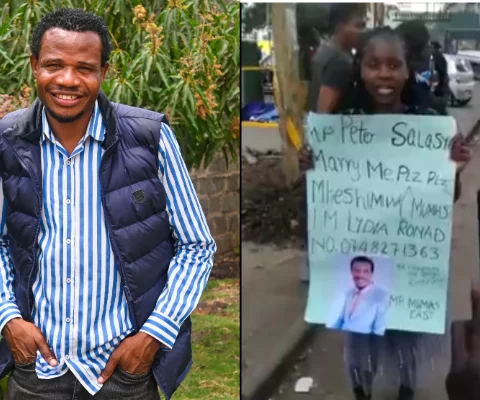 MP Peter Salasya
Marry Me Plz Plz
Mheshimiwa MUMIAS
I'M LYDIA RONAD
NO. 0748271363
MP MUMIAS
EAST